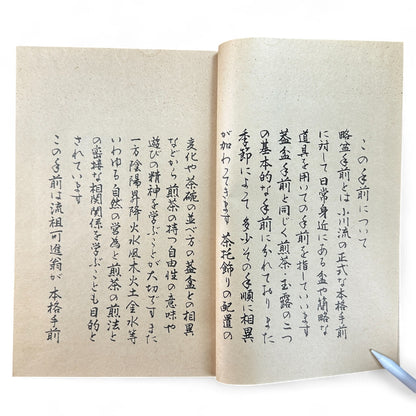 この手前について
略盆手前とは小川流の正式な本格手前
に対して日常身近にある盆や簡略な
道具を用いての手前を指していいます
葢盆手前と同じく煎茶・玉露の二つ
の基本的な手前に分れておりまた
季節によって多少その手順に相異
が加わってきます 茶托飾りの配置の
変化や茶碗の並べ方の葢盆との相異
などから煎茶の持つ自由性の意味や
遊びの精神を学ぶことが大切ですまた
一方陰陽昇降火水風木火土金水等
いわゆる自然の営為と煎茶の煎法と
の密接な相関関係を学ぶことも目的と
されています
この手前は流祖可進翁が本格手前